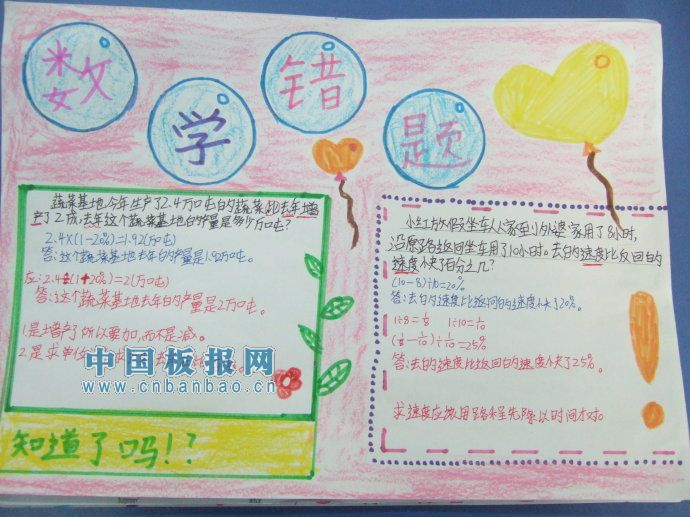 数学错题
蔬菜基地今年生产了2.4万吨的蔬菜,比去年增
产了2成,去年这个蔬菜基地的产量是多少万吨?
2.4×(1-20%)=1.92(万吨)
答:这个蔬菜基地去年的产量是1.92万吨。
2.4÷(1+20%)=2(万吨)
答:这个蔬菜基地去年的产量是2万吨。
1.是增产了所以要加,而不是减。
2.是求单位
中国板报网
www.cnbanbao.cn
知道了吗!?
小红放假坐车从家到外婆家用了8小时,
沿原路返回坐车用了10小时。去的速度比返回的
速度快了百分之几?
(10-8)÷10=20%
答:去的速度比返回的速度快了20%。
1÷8=1/8 1÷10=1/10
(1/8-1/10)÷1/10=25%
答:去的速度比返回的速度快了25%。
求速度应该用路程先除以时间才对。